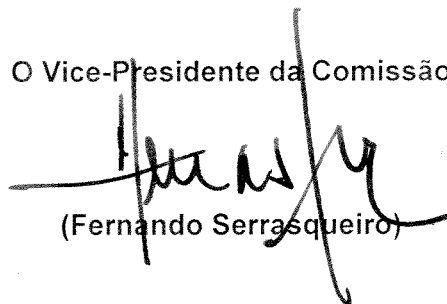 O Vice-Presidente da Comissão
(Fernando Serrasqueiro)